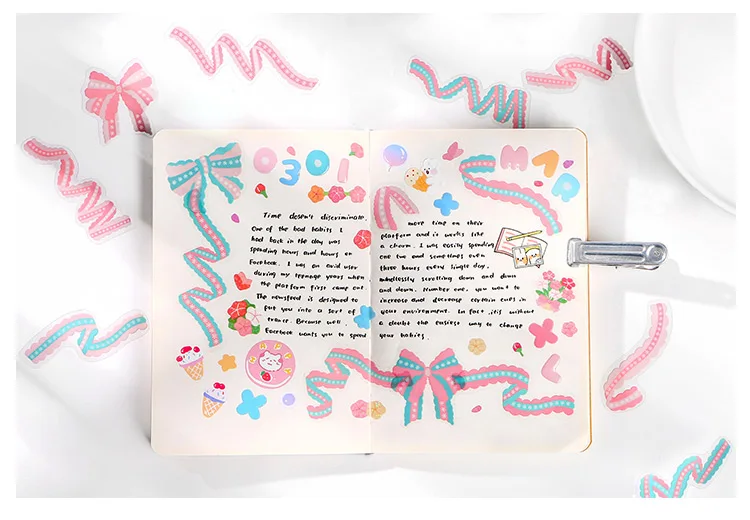 0301
Time doesn't discriminate.
One of the bad habits I
had back in the day was
spending hours and hours on
Facebook. I was an avid user
during my teenage years when
the platform first came out
The newsfeed is designed to
put you into a sort of
trance. Because well,
Facebook wants you to spend
HAPPY
MAR
more time on their
platform and it works like
a charm. I was easily spending
one two and sometimes even
three hours every single day,
scrolling down and down
and down. Number one, you want to
increase and decrease certain cues in
your environment. In fact, it is without
a doubt the easiest way to change
your habits.